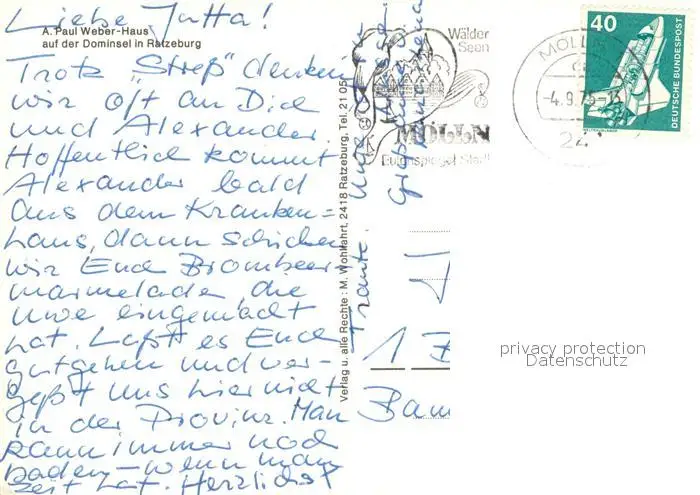 Liebe Jutta!
A. Paul Weber-Haus
auf der Dominsel in Ratzeburg
Trotz "Streß" denken
wir oft an Dich
und Alexander.
Hoffentlich kommt
Alexander bald
aus dem Kranken=
haus, dann schicken
wir Euch Brombeer
marmelade, die
Uwe eingemacht
hat. Laßt es Euch
gutgehen und ver-
geßt uns hier nicht
in der Provinz. Man
kann immer noch
baden – wenn man
Zeit hat. Herzlichst
Traute.
Verlag u. alle Rechte: M. Wohlfahrt, 2418 Ratzeburg, Tel. 21 05
Wälder
Seen
MÖLLN
Eulenspiegel-Stadt
MÖLLN
-4.9.75
24
40
DEUTSCHE BUNDESPOST
WELTRAUMLABOR
1
Bam
privacy protection
Datenschutz